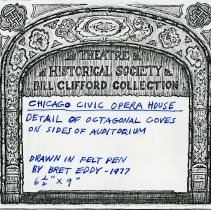 THEATRE
HISTORICAL SOCIETY
BILL CLIFFORD COLLECTION
CHICAGO CIVIC OPERA HOUSE
DETAIL OF OCTAGONAL COVES
ON SIDES OF AUDITORIUM
DRAWN IN FELT PEN
BY BRET EDDY - 1977
6 ½" X 9"